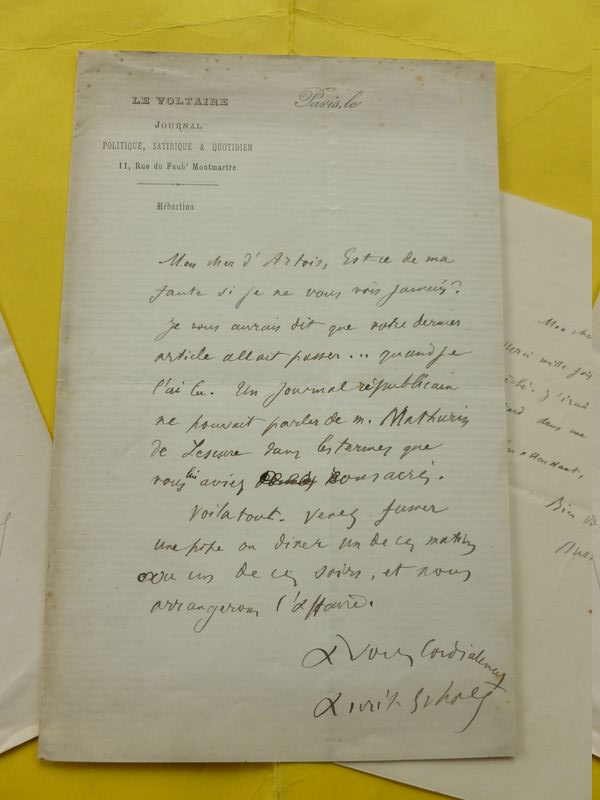 LE VOLTAIRE
JOURNAL
POLITIQUE, SATIRIQUE & QUOTIDIEN
11, Rue du Faub^t Montmartre
Rédaction
Paris, le
Mon cher d'Artois, Est-ce de ma
faute si je ne vous vois jamais?
Je vous aurais dit que votre dernier
article allait passer... quand je
l'ai lu. Un journal républicain
ne pouvait parler de M. Mathurin
de Lescure dans les termes que
vous lui aviez consacrés.
Voilà tout. Venez fumer
une pipe ou dîner un de ces matins
ou un de ces soirs, et nous
arrangerons l'affaire.
à vous cordialement
Aurélien Scholl
Mon cher
merci mille fois
dans une
en attendant,
Bien